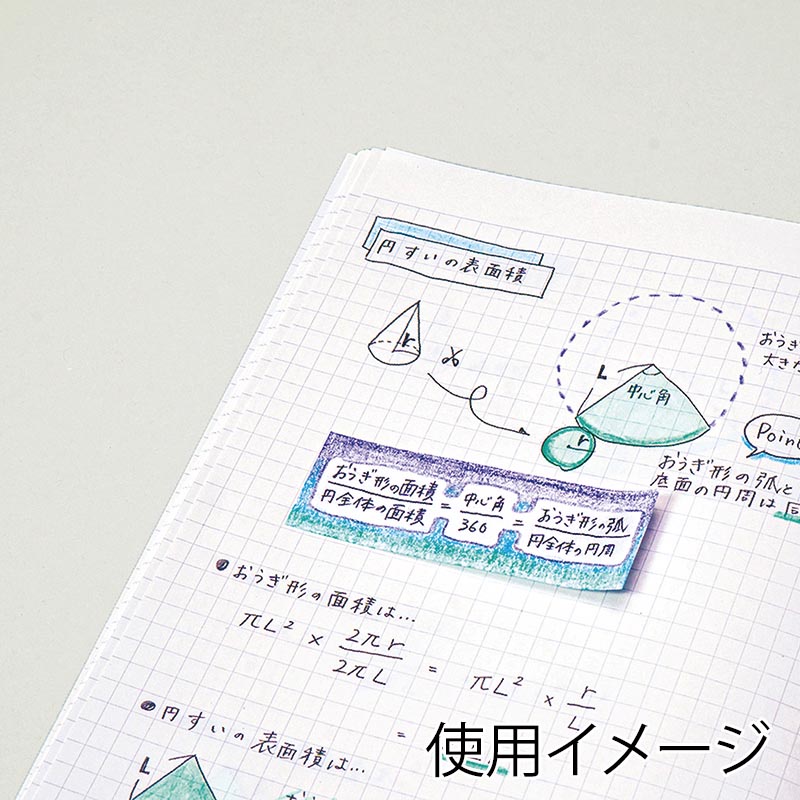 円すいの表面積
r
おうぎ
大き
L
中心角
r
Poin
おうぎ形の弧と
底面の円周は
おうぎ形の面積/円全体の面積 = 中心角/360 = おうぎ形の弧/円全体の円周
❶おうぎ形の面積は…
πL² × 2πr/2πL = πL² × r/L
❷円すいの表面積は…
=
L
使用イメージ